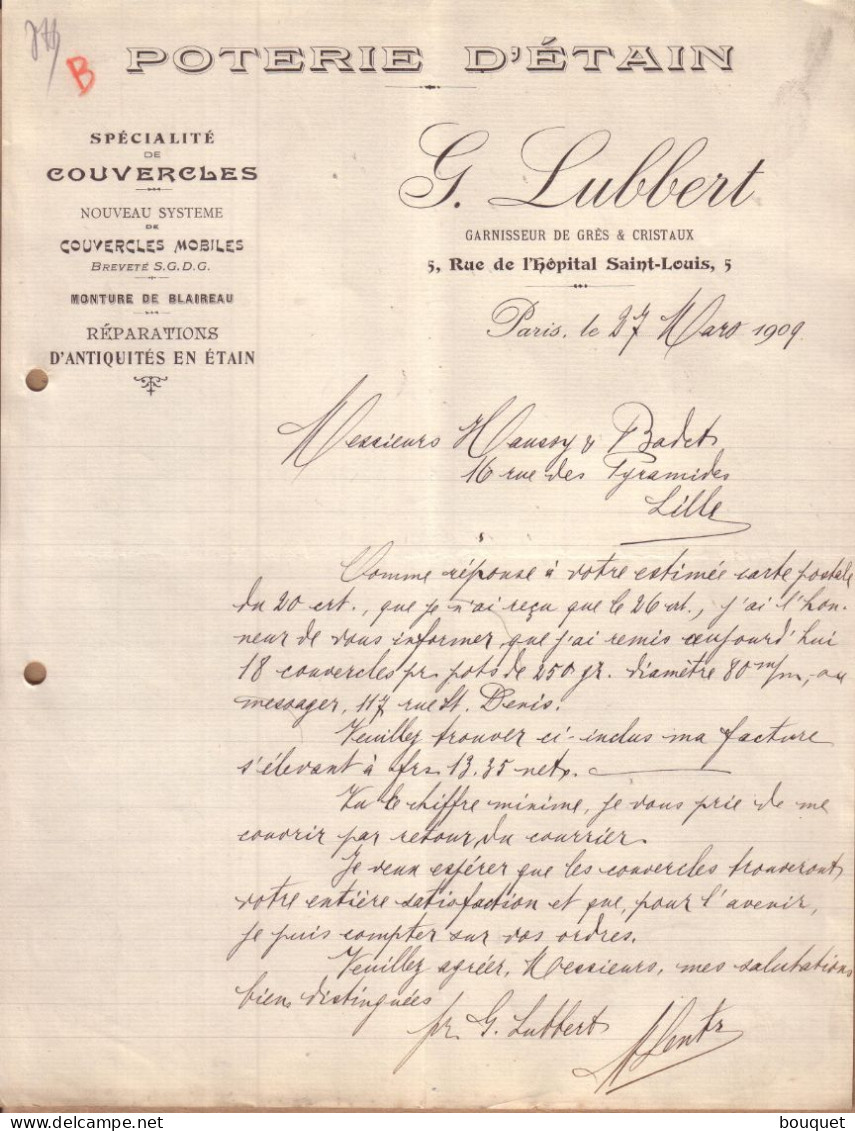 B
POTERIE D'ÉTAIN
SPÉCIALITÉ
DE
COUVERCLES
NOUVEAU SYSTEME
DE
COUVERCLES MOBILES
BREVETÉ S.G.D.G.
MONTURE DE BLAIREAU
RÉPARATIONS
D'ANTIQUITÉS EN ÉTAIN
G. Lubbert
GARNISSEUR DE GRÈS & CRISTAUX
5, Rue de l'Hôpital Saint-Louis, 5
Paris, le 27 Mars 1909.
Messieurs Haussy & Badet
16 rue des Pyramides
Lille
Comme réponse à votre estimée carte postale
du 20 crt., que je n'ai reçu que le 26 crt., j'ai l'hon-
neur de vous informer, que j'ai remis aujourd'hui
18 couvercles pr. pots de 250 gr. diamètre 80 m/m, au
messager, 117 rue St. Denis.
Veuillez trouver ci-inclus ma facture
s'élevant à frs. 13.35 net.
Vu le chiffre minime, je vous prie de me
couvrir par retour du courrier.
Je veux espérer que les couvercles trouveront
votre entière satisfaction et que, pour l'avenir,
je puis compter sur vos ordres.
Veuillez agréer, Messieurs, mes salutations
bien distinguées
pr. G. Lubbert
bouquet